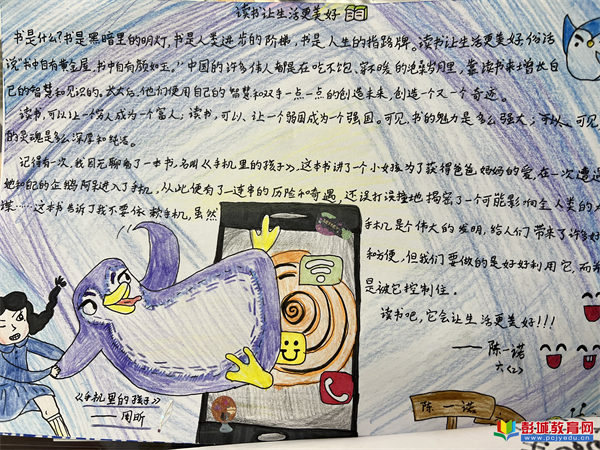 读书让生活更美好
书是什么?书是黑暗里的明灯,书是人类进步的阶梯,书是人生的指路牌。读书让生活更美好,俗话
说"书中自有黄金屋,书中自有颜如玉。"中国的许多伟人都是在吃不饱、穿不暖的艰苦岁月里,靠读书来增长自
己的智慧和见识的。长大后,他们使用自己的智慧和双手一点一点的创造未来,创造一个又一个奇迹。
读书,可以让一个穷人成为一个富人。读书,可以让一个弱国成为一个强国。可见,书的魅力是多么强大,可见
的灵魂是多么深厚和纯洁。
记得有一次,我目无聊看了一本书,名叫《手机里的孩子》,这本书讲了一个小女孩为了获得爸爸妈妈的爱,在一次遭遇
她和自己的企鹅阿呆进入了手机,从此便有了一连串的历险和奇遇,还误打误撞地揭密了一个可能影响全人类的大
谋……这本书告诉了我不要依赖手机,虽然
手机是个伟大的发明,给人们带来了许多好
和方便,但我们要做的是好好利用它,而非
是被它控制住。
读书吧,它会让生活更美好!!!
——陈一诺
六(2)
《手机里的孩子》
——周昕
陈一诺
彭城教育网
www.pcjyedu.cn